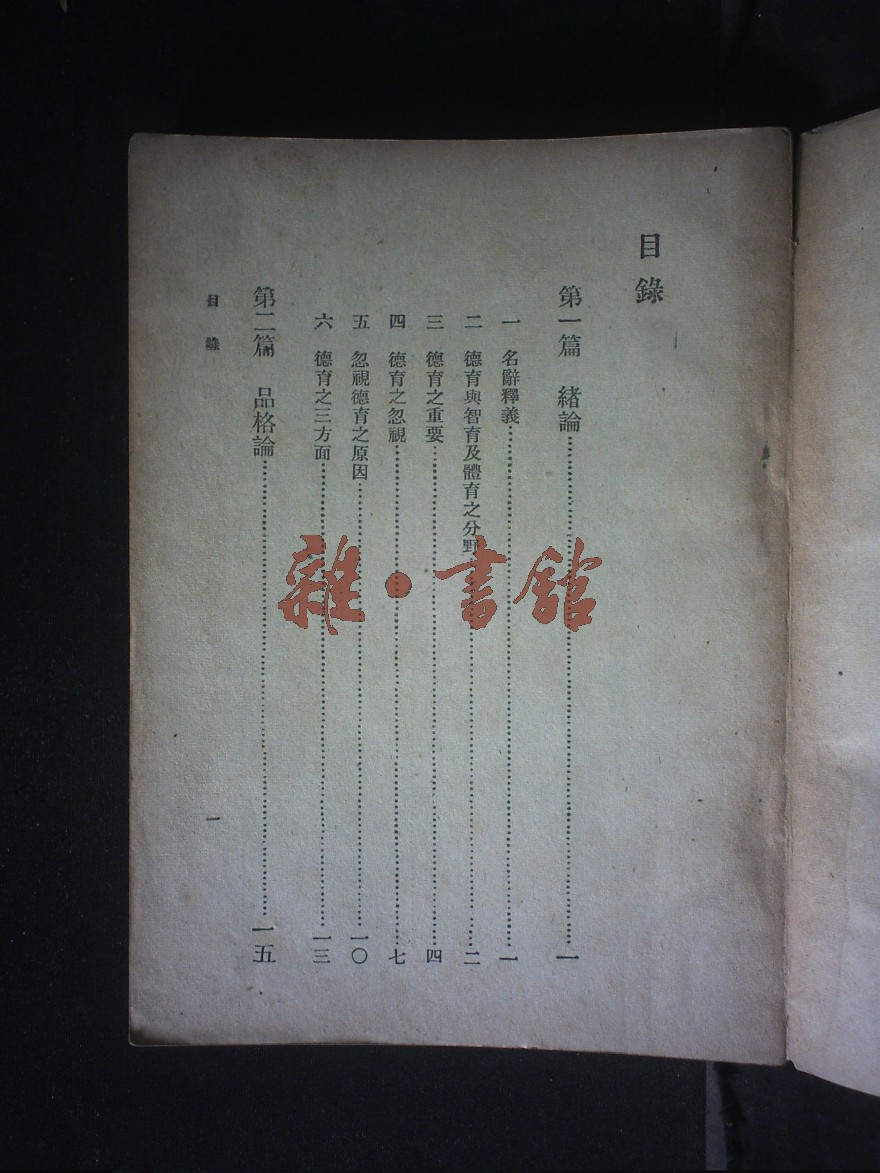 目錄
第一篇 緒論……一
一 名辭釋義……一
二 德育與智育及體育之分野……二
三 德育之重要……四
四 德育之忽視……七
五 忽視德育之原因……一〇
六 德育之三方面……一三
第二篇 品格論……一五
目錄 一
雜·書館